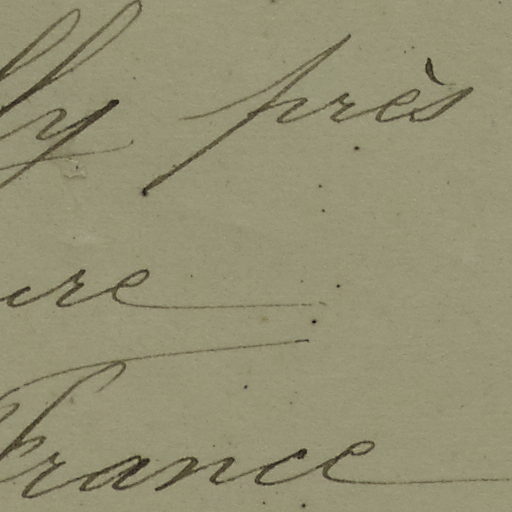 lly près
ure
France